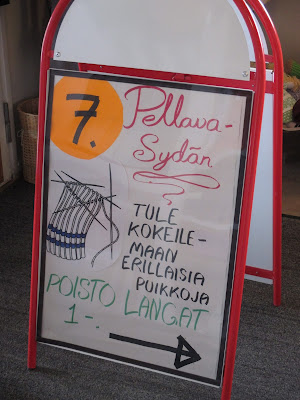 7.
Pellava-
Sydän
TULE
KOKEILE-
MAAN
ERILLAISIA
PUIKKOJA
POISTO LANGAT
1-.